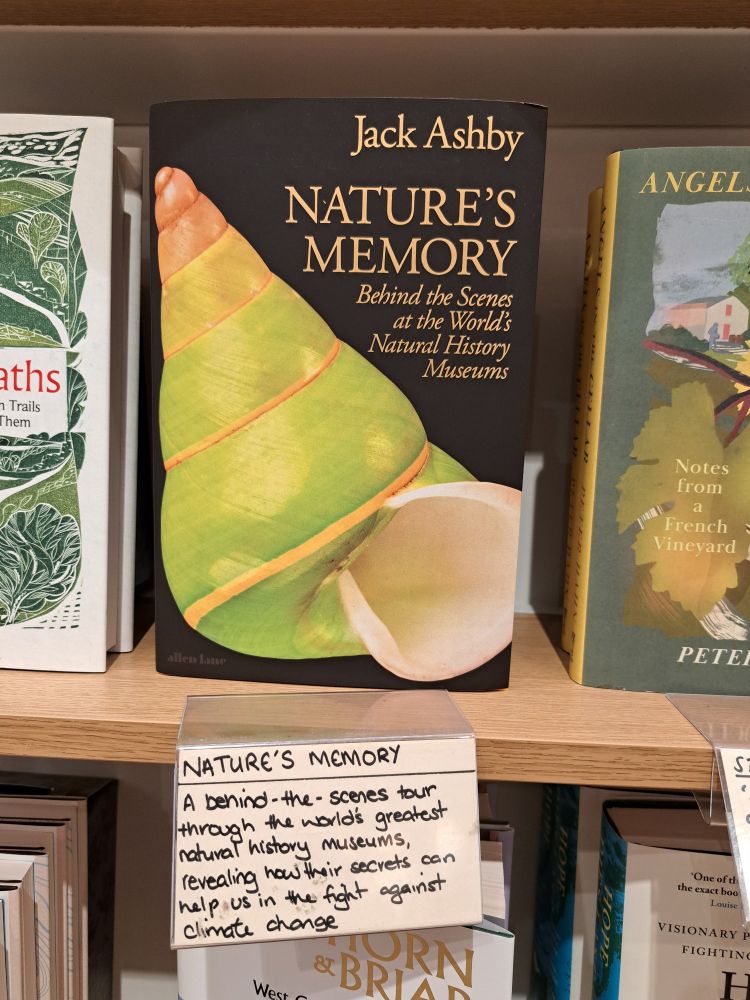 Jack Ashby
NATURE'S
MEMORY
Behind the Scenes
at the World's
Natural History
Museums
allen lane
aths
Trails
Them
ANGELS
Notes
from
a
French
Vineyard
PETE
NATURE'S MEMORY
A behind-the-scenes tour
through the world's greatest
natural history museums,
revealing how their secrets can
help us in the fight against
climate change
HORN
& BRIAR
West
'One of
the exact boo
Louise
VISIONARY P
FIGHTING
H
HOPE